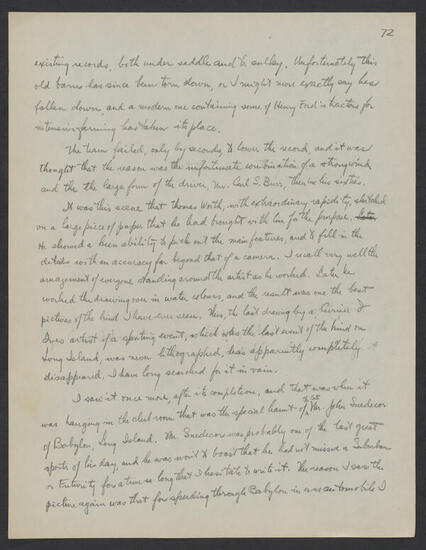 72
existing records, both under saddle and to sulkey. Unfortunately this
old barn has since been torn down, or I might more exactly say has
fallen down and a modern one containing some of Henry Ford's tractors for
intensive farming has taken its place.
The team failed, only by seconds, to lower the record, and it was
thought that the reason was the unfortunate combination of a strong wind
and the the large form of the driver, Mr. Carl S. Burr, then in his sixties.
It was this scene that Thomas Worth, with extraordinary rapidity, sketched
on a large piece of paper that he had brought with him for the purpose.
He showed a keen ability to pick out the main features, and to fill in the
details with an accuracy far beyond that of a camera. I recall very well the
arrangement of everyone standing around the artist as he worked. Later he
worked the drawing over in water colours, and the result was one of the best
pictures of the kind I have ever seen. Thus, the last drawing by a Currier &
Ives artist of a sporting event, which was the last event of the kind on
Long Island, was never lithographed, has apparently completely
disappeared, I have long searched for it in vain.
I saw it once more, after its completion, and that was when it
was hanging in the club room that was the special haunt of the Mr. John Snedecor
of Babylon, Long Island. Mr. Snedecor was probably one of the last great
sports of his day, and he was wont to boast that he had not missed a Suburban
or Futurity for a time so long that I hesitate to write it. The reason I saw the
picture again was that for speeding through Babylon in an automobile I